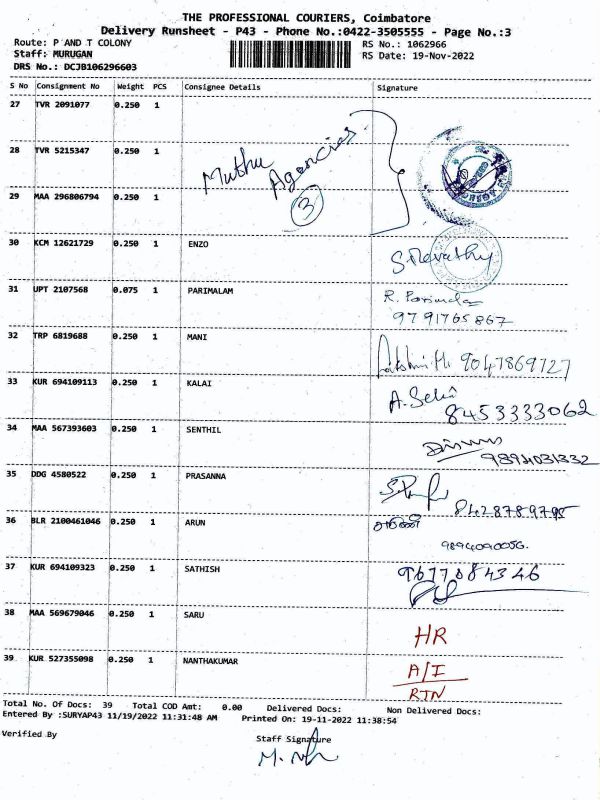 THE PROFESSIONAL COURIERS, Coimbatore
Delivery Runsheet - P43 - Phone No.:0422-3505555 - Page No.:3
Route: P AND T COLONY
RS No.: 1062966
Staff: MURUGAN
RS Date: 19-Nov-2022
DRS No.: DCJB106296603
S No Consignment No Weight PCS Consignee Details Signature
27 TVR 2091077 0.250 1
28 TVR 5215347 0.250 1
Muthu Agencies
3
29 MAA 296806794 0.250 1
30 KCM 12621729 0.250 1 ENZO
S Revathy
31 UPT 2107568 0.075 1 PARIMALAM
9791765867
32 TRP 6819688 0.250 1 MANI
9047869727
33 KUR 694109113 0.250 1 KALAI
8453333062
34 MAA 567393603 0.250 1 SENTHIL
9894031332
35 DDG 4580522 0.250 1 PRASANNA
8428789795
36 BLR 2100461046 0.250 1 ARUN
9894090056.
37 KUR 694109323 0.250 1 SATHISH
9677084346
38 MAA 569679046 0.250 1 SARU
HR
39 KUR 527355098 0.250 1 NANTHAKUMAR
A/I
RTN
Total No. Of Docs: 39 Total COD Amt: 0.00 Delivered Docs: Non Delivered Docs:
Entered By :SURYAP43 11/19/2022 11:31:48 AM Printed On: 19-11-2022 11:38:54
Verified By
Staff Signature